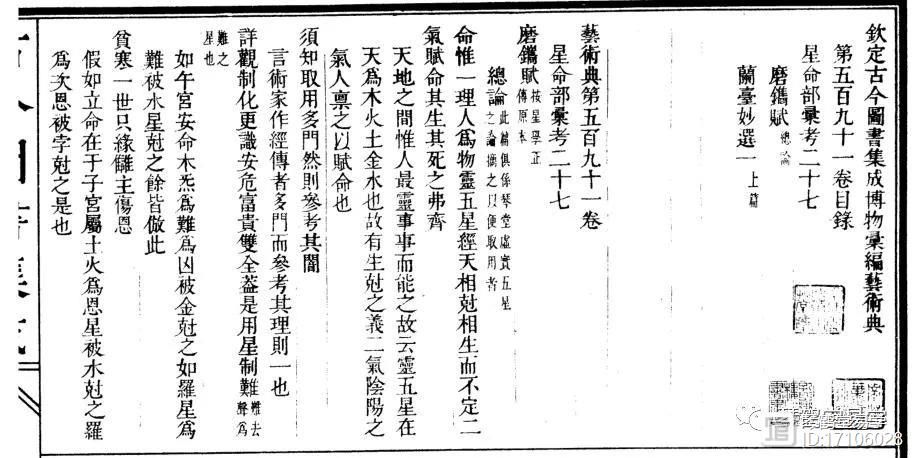 欽定古今圖書集成博物彙編藝術典
第五百九十一卷目錄
星命部彙考二十七
磨鐫賦 總論
蘭臺妙選一 上篇
藝術典第五百九十一卷
星命部彙考二十七
磨鐫賦 按星學正傳原本
總論 此篇俱係琴堂虛實五星之論摘之以便取用者
命惟一理人爲物靈五星經天相尅相生而不定二
氣賦命其生其死之弗齊
天地之間惟人最靈事事而能之故云靈五星在
天爲木火土金水也故有生尅之義二氣陰陽之
氣人禀之以賦命也
須知取用多門然則參考其闇
言術家作經傳者多門而參考其理則一也
詳觀制化更識安危富貴雙全葢是用星制難 難去聲爲
難之星也
如午宮安命木炁爲難爲凶被金尅之如羅星爲
難被水星尅之餘皆倣此
貧寒一世只緣讎主傷恩
假如立命在于子宮屬土火爲恩星被水尅之羅
爲次恩被孛尅之是也
ID:17106028